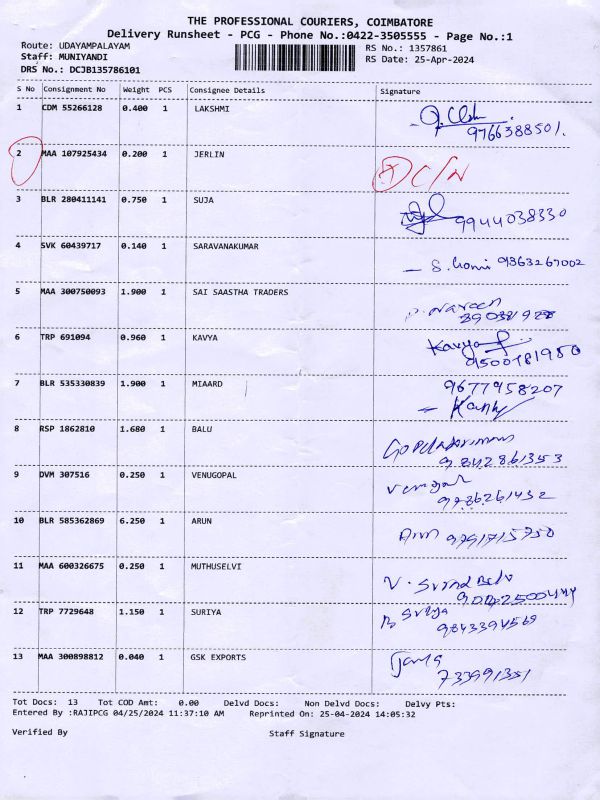 THE PROFESSIONAL COURIERS, COIMBATORE
Delivery Runsheet - PCG - Phone No.:0422-3505555 - Page No.:1
Route: UDAYAMPALAYAM
Staff: MUNIYANDI
DRS No.: DCJB135786101
RS No.: 1357861
RS Date: 25-Apr-2024
S No Consignment No Weight PCS Consignee Details Signature
1 CDM 55266128 0.400 1 LAKSHMI
9766388501.
2 MAA 107925434 0.200 1 JERLIN C/N
3 BLR 280411141 0.750 1 SUJA
9944038330
4 SVK 60439717 0.140 1 SARAVANAKUMAR
9363267002
5 MAA 300750093 1.900 1 SAI SAASTHA TRADERS
6 TRP 691094 0.960 1 KAVYA Kavya
7 BLR 535330839 1.900 1 MIAARD 9677958207
8 RSP 1862810 1.680 1 BALU
9842861353
9 DVM 307516 0.250 1 VENUGOPAL
9786261432
10 BLR 585362869 6.250 1 ARUN
9791715750
11 MAA 600326675 0.250 1 MUTHUSELVI
12 TRP 7729648 1.150 1 SURIYA
9843394569
13 MAA 300898812 0.040 1 GSK EXPORTS
Tot Docs: 13 Tot COD Amt: 0.00 Delvd Docs: Non Delvd Docs: Delvy Pts:
Entered By :RAJIPCG 04/25/2024 11:37:10 AM Reprinted On: 25-04-2024 14:05:32
Verified By Staff Signature